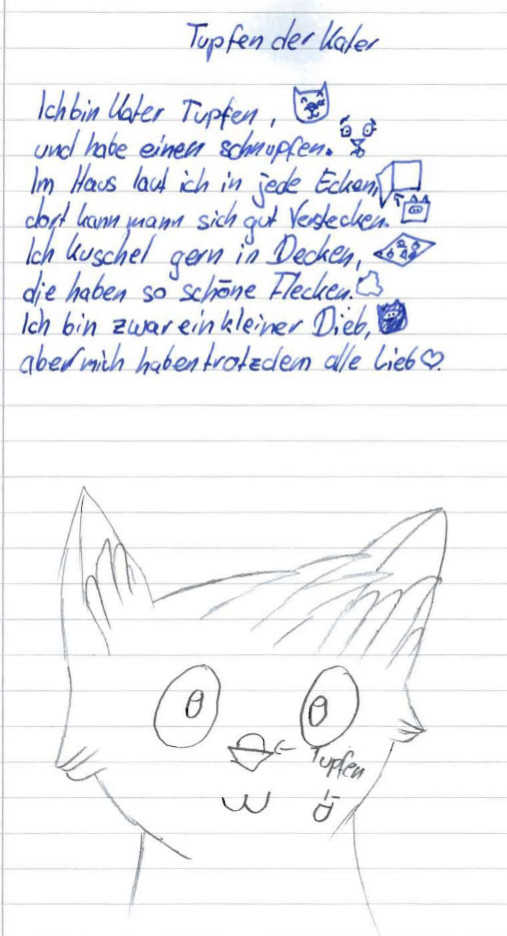 Tupfen der Kater
Ich bin Kater Tupfen,
und habe einen schnupfen.
Im Haus lauf ich in jede Ecken,
dort kann mann sich gut Verstecken.
Ich Kuschel gern in Decken,
die haben so schöne Flecken.
Ich bin zwar ein kleiner Dieb,
aber mich haben trotzdem alle Lieb♡.
Tupfen